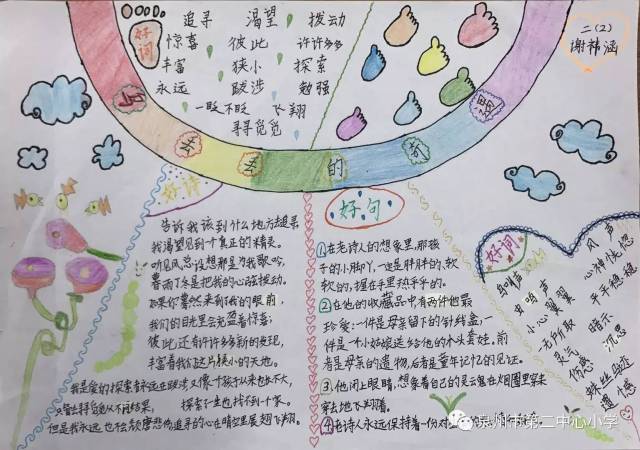 好词
追寻 渴望 拨动
惊喜 彼此 许许多多
丰富 狭小 探索
永远 跋涉 勉强
一眨不眨 飞翔
寻寻觅觅
二(2)
谢祎涵
乌丢丢的奇遇
好诗
告诉我该到什么地方去追寻
我渴望见到个真正的精灵。
听见风总设想那是为我歌吟,
春雨丁冬是把我的心弦拨动。
如果你蓦然来到我的眼前,
我们的目光里会充盈着惊喜;
彼此还有许许多多新的发现,
丰富着我们这片狭小的天地。
我是爱的探索者永远在跋涉
探索一生也找不到一家。
但是我永远也不会颓唐悲伤
追寻的心在晴空里展翅飞翔。
好句
①在老诗人的想象里,那孩
子的小脚丫,一定是胖胖的,软
软的,握在手里热乎乎的。
②在他的收藏品中有两件他最
珍爱:一件是母亲留下的针线盒,一
件是一个小姑娘送给他的木头套娃。前
者是母亲的遗物,后者是童年记忆的见证。
③他闭上眼睛,想象着自己的灵云鬼在烟圈里穿来
穿去地飞翔着。
④老诗人永远保持着一份对
好词
鸟鸣声
虫鸣声
小心翼翼
灵云
伤感
风声
心神恍惚
平平稳稳
暗示
沉思
蛛丝马迹
遗憾
泉州市第二中心小学